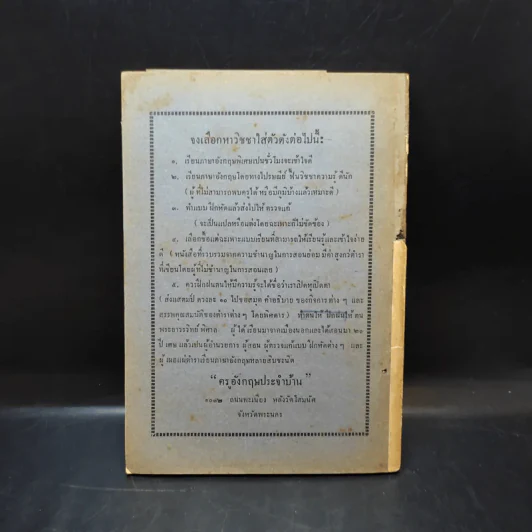 จงเลือกหาวิชชาใส่ตัวดังต่อไปนี้:-
๑. เรียนภาษาอังกฤษพิเศษเปนชั่วโมงจะเข้าใจดี
๒. เรียนภาษาอังกฤษโดยทางไปรษณีย์ ฟื้นวิชชาความรู้ ดีนัก
( ผู้ ที่ไม่สามารถพบครูได้ หรือมีภูมิบ้างแล้วเหมาะดี )
๓. ทำแบบ ฝึกหัดแล้วส่งไปให้ ตรวจแก้
( จะเป็นแปลหรือแต่งโดยฉะเพาะก็ไม่ขัดข้อง )
๔. เลือกซื้อแต่ฉะเพาะแบบเรียนที่สามารถให้เรียนรู้และเข้าใจง่าย
ดี ( หนังสือที่รวบรวมจากความชำนาญในการสอนย่อม มีค่าสูงกว่าตำรา
ที่เขียนโดยผู้ที่ไม่ชำนาญในการสอนเลย )
๕. ควรฝึกฝนตนให้มีความรู้จะได้ชื่อว่าเราเปิดหูเปิดตา
( ส่งแสตมป์ ดวงละ ๑๐ ไปขอสมุด คำอธิบาย ของกิจการต่าง ๆ และ
สรรพคุณสมบัติของตำราต่าง ๆ โดยพิศดาร ) ที่
พระยาวรวิทย์ พิศาล ผู้ได้เรียนมาจากเมืองนอกและได้สอนมา ๒๐
ปี เศษ แล้วเป็นผู้อำนวยการ ผู้สอน ผู้ตรวจแก้แบบ ฝึกหัดต่าง ๆ และ
ผู้ แต่งตำราเรียนภาษาอังกฤษหลายสิบชะนิด
“ครูอังกฤษประจำบ้าน”
๑๐๓๒ ถนนพะเนียง หลังวัดโสมนัส
จังหวัดพระนคร